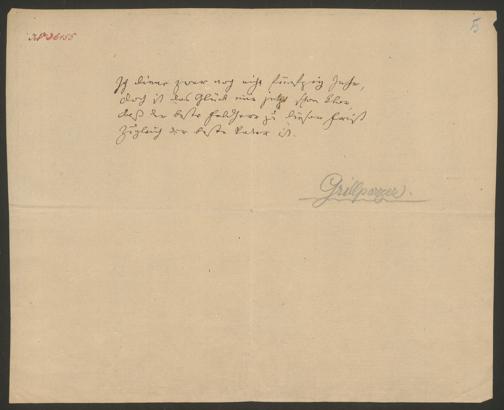 I.N. 36155
5
Ich diene zwar noch nicht fünfzig Jahr,
doch ist das Glück mir jetzt schon
daß der beste Feldherr zu dieser Frist
Zugleich der beste Vater ist.
Grillparzer.